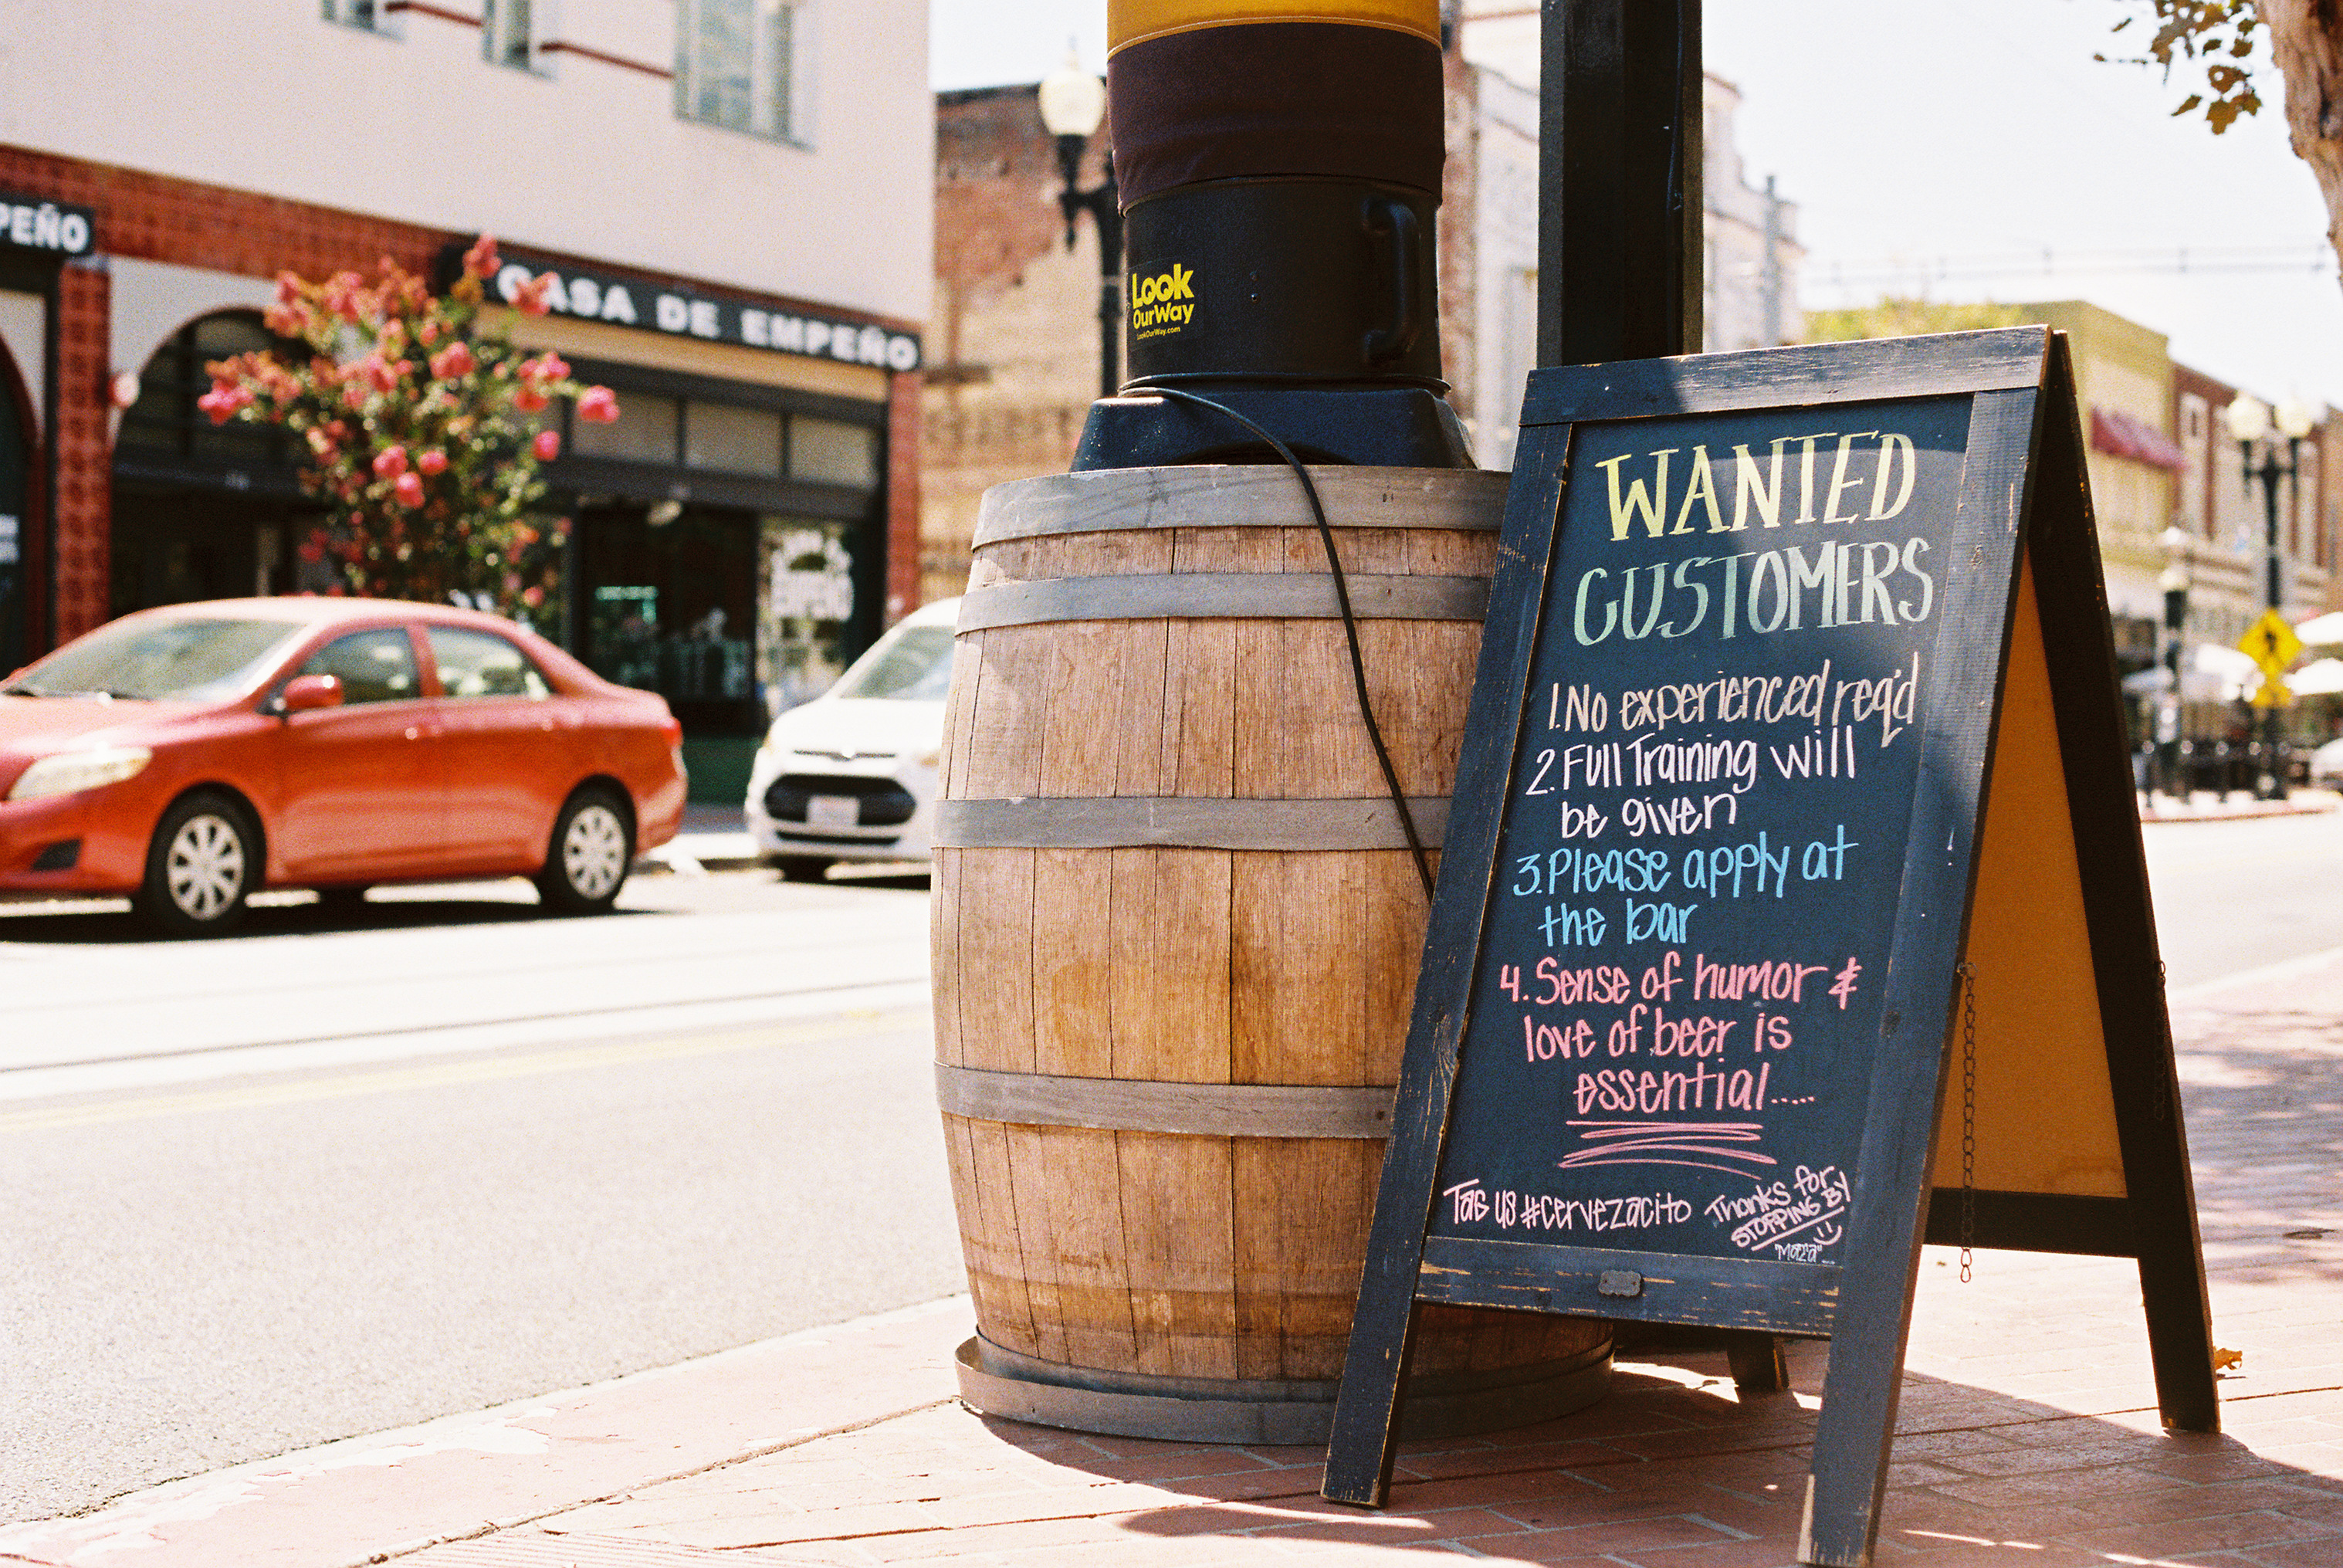 PEÑO
CASA DE EMPEÑO
Look
OurWay
LookOurWay.com
WANTED
CUSTOMERS
1. No experienced req'd
2. Full Training will
be given
3. Please apply at
the bar
4. Sense of humor &
love of beer is
essential.....
Tag us #cervezacito
Thanks for
STOPPING BY
"Maza"